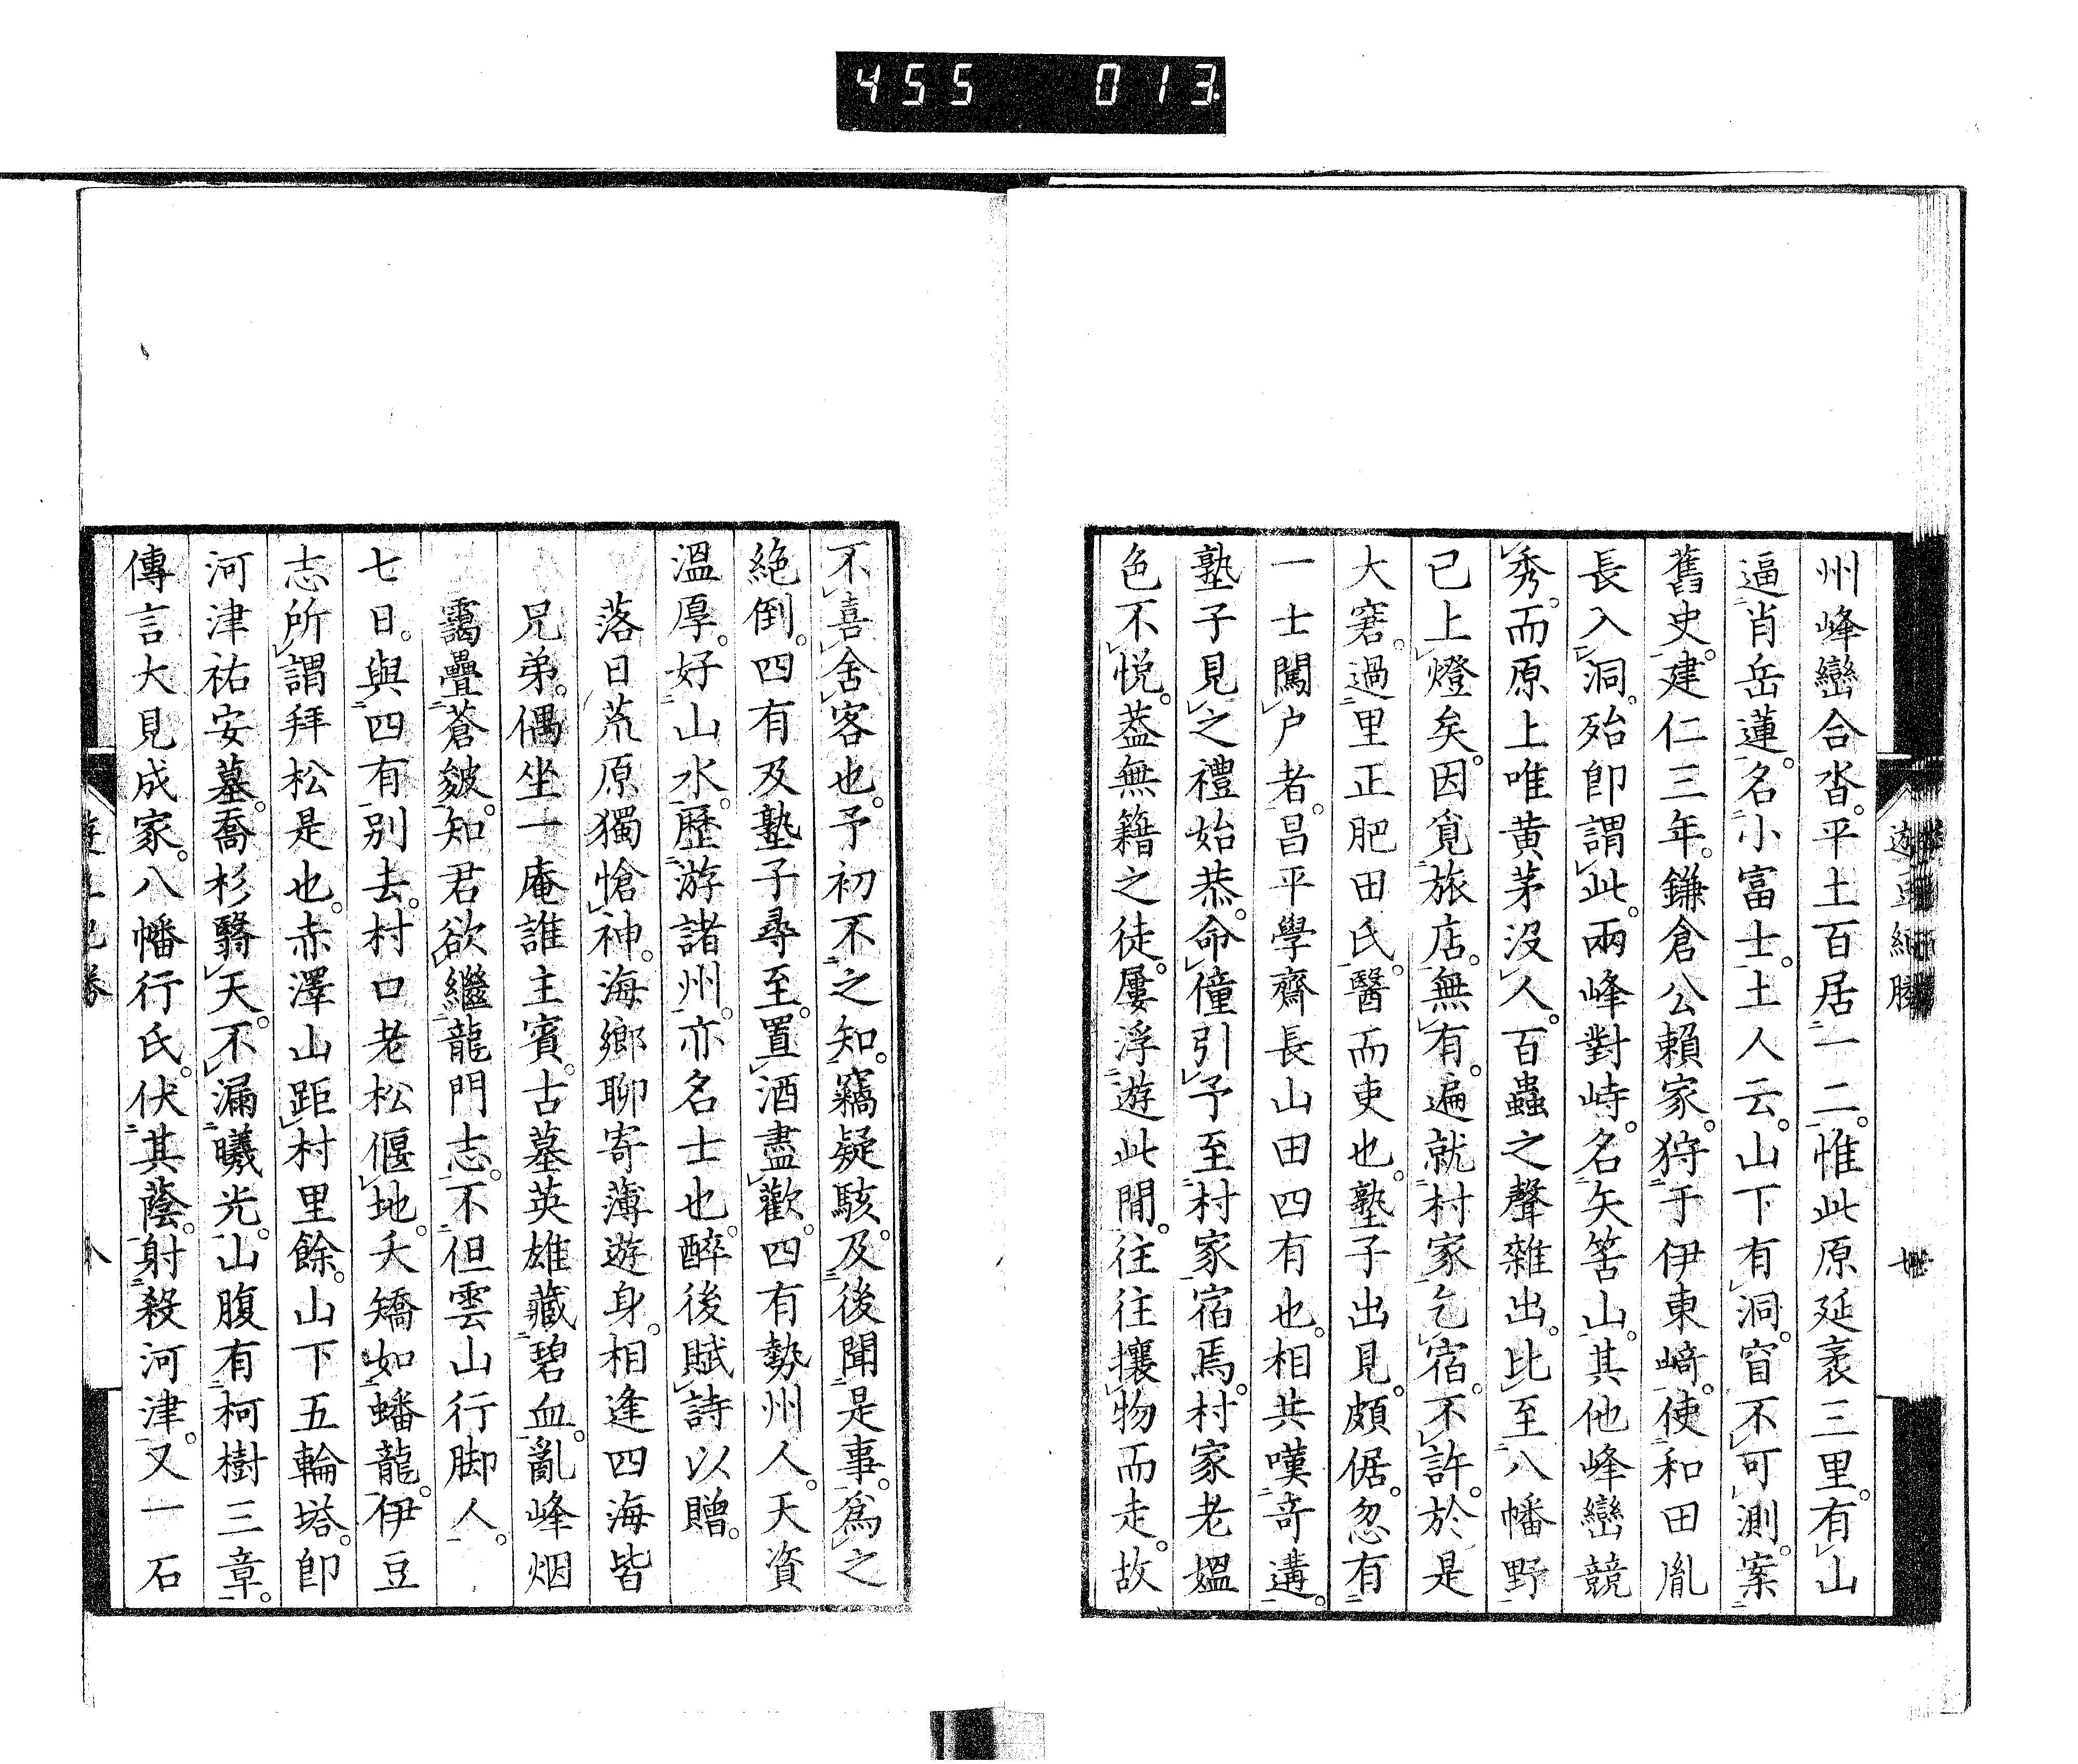 455 013
州峰巒合沓。平土百居一二。惟此原延袤三里。有山
逼肖岳蓮。名小富士。土人云。山下有洞。窅不可測。案
舊史。建仁三年。鎌倉公賴家。狩于伊東﨑。使和田胤
長入洞。殆卽謂此。兩峰對峙。名矢筈山。其他峰巒競
秀。而原上唯黄茅没人。百蟲之聲雜出。比至八幡野
已上燈矣。因覓旅店。無有。遍就村家乞宿。不許。於是
大窘。過里正肥田氏。醫而吏也。塾子出見。頗倨。忽有
一士闖户者。昌平學齋長山田四有也。相共嘆奇遘。
塾子見之禮始恭。命僮引予至村家宿焉。村家老媼
色不悦。葢無籍之徒。屢浮遊此間。往往攘物而走。故
不喜舍客也。予初不之知。竊疑駭。及後聞是事。爲之
絶倒。四有及塾子尋至。置酒盡歡。四有勢州人。天資
溫厚。好山水。歷游諸州。亦名士也。醉後賦詩以贈。
落日荒原獨愴神。海鄉聊寄薄遊身。相逢四海皆
兄弟。偶坐一庵誰主賓。古墓英雄藏碧血。亂峰烟
靄疊蒼皴。知君欲繼龍門志。不但雲山行脚人。
七日。與四有别去。村口老松偃地。夭矯如蟠龍。伊豆
志所謂拜松是也。赤澤山距村里餘。山下五輪塔。卽
河津祐安墓。喬杉翳天。不漏曦光。山腹有柯樹三章。
傳言大見成家。八幡行氏。伏其蔭。射殺河津。又一石
八